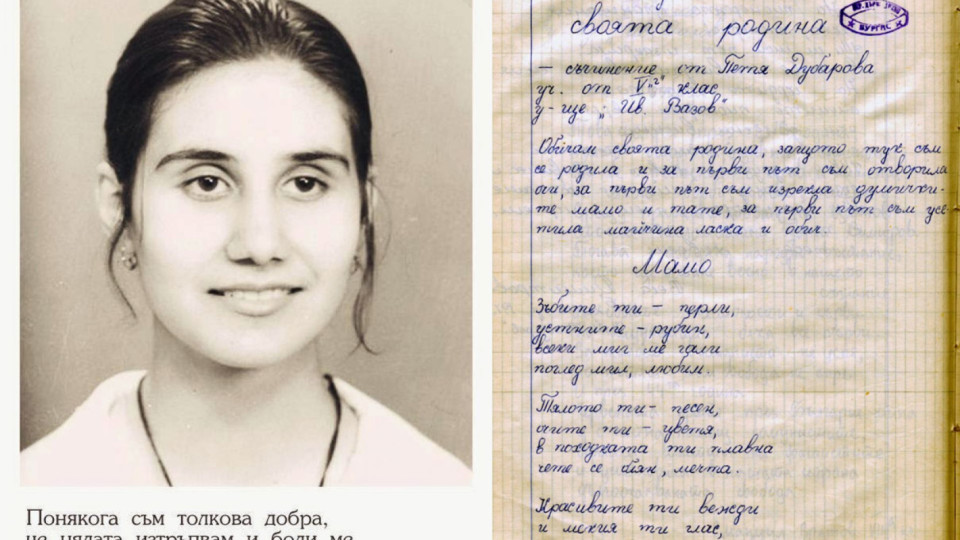 Понякога съм толкова добра,
че цялата изтръпвам и боли ме
своята родина
БУРГАС
– съчинение от Петя Дубарова
уч. от V "г" клас
у-ще "Ив. Вазов"
Обичам своята родина, защото тук съм
се родила и за първи път съм отворила
очи, за първи път съм изрекла думички-
те мамо и тате, за първи път съм усе-
тила майчина ласка и обич.
Мамо
Зъбите ти – перли,
устните – рубин,
всеки миг ме гали
поглед мил, любим.
Тялото ти – песен,
очите ти – цветя,
в походката ти плавна
чете се блян, мечта.
Красивите ти вежди
и мекия ти глас,